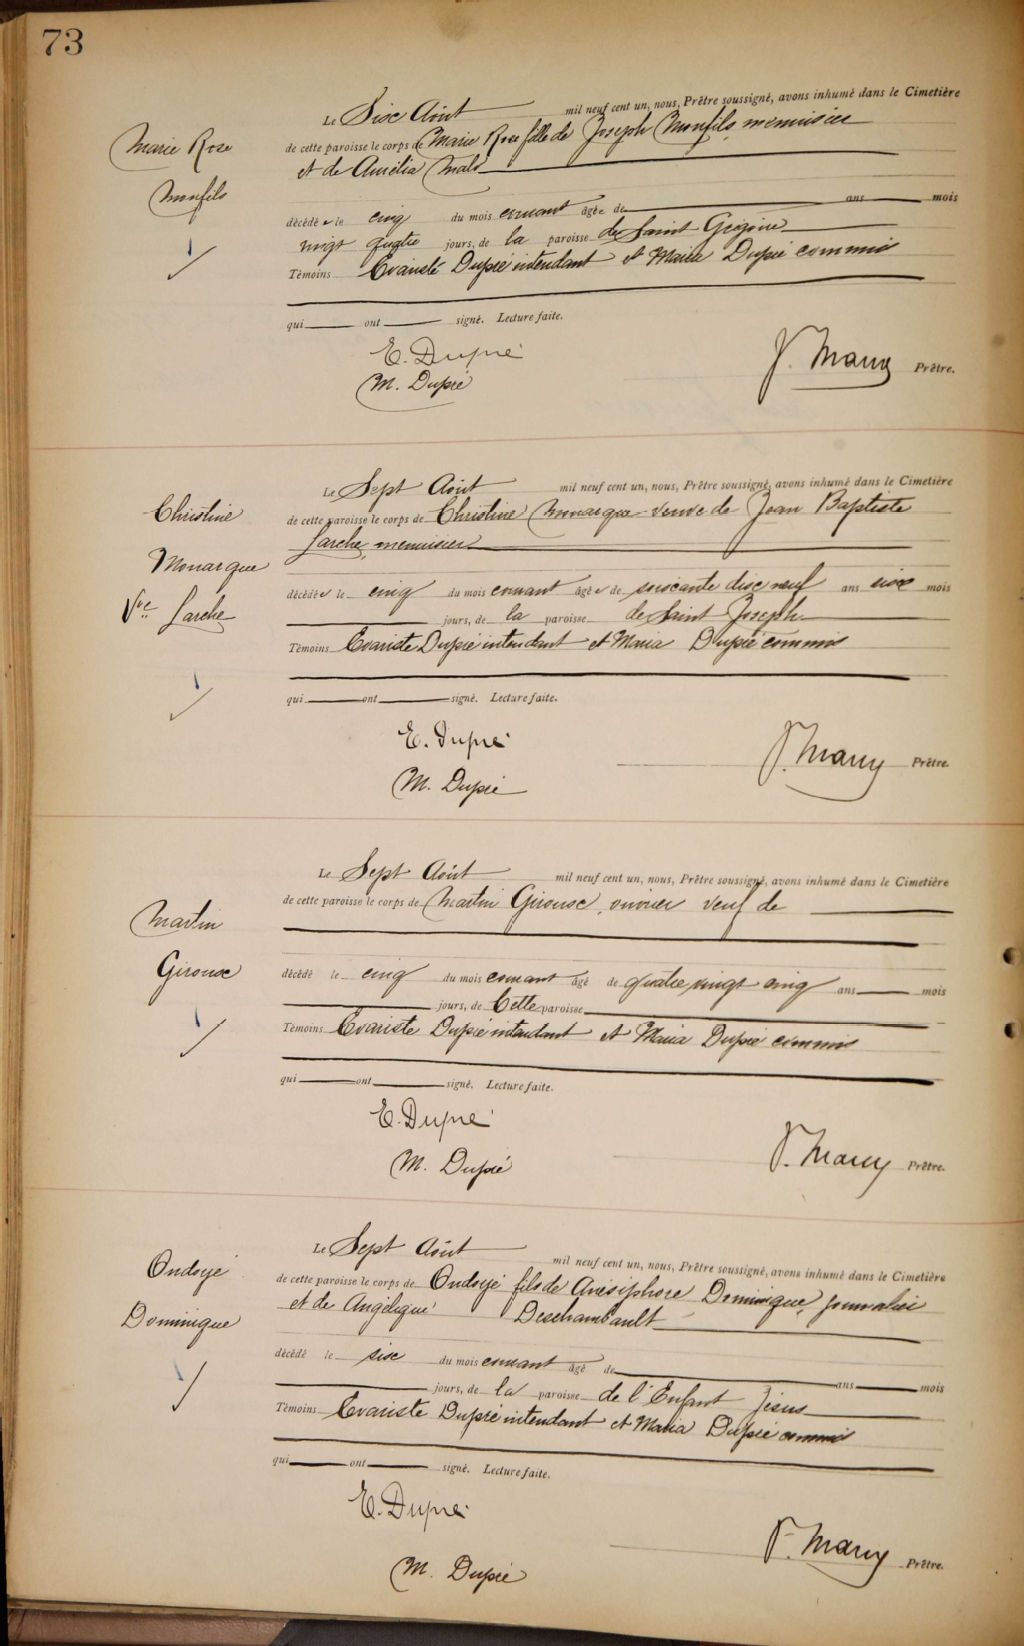 73
Marie Rose
Monfils
Le Sisc Août mil neuf cent un, nous, Prêtre soussigné, avons inhumé dans le Cimetière
de cette paroisse le corps de Marie Rose fille de Joseph Monfils, menuisier
et de Aurélia
décédée le cinq du mois courant âgée de ans mois
vingt quatre jours, de la paroisse de Saint Grégoire
Témoins Evariste Dupré intendant et Maria Dupré commis
qui ont signé. Lecture faite.
E. Dupré
M. Dupré
Prêtre.
Christine
Monarque
Vve Larche
Le Sept Août mil neuf cent un, nous, Prêtre soussigné, avons inhumé dans le Cimetière
de cette paroisse le corps de Christine Monarque veuve de Jean Baptiste
Larche, menuisier
décédée le cinq du mois courant âgée de soiscante disc neuf ans sisc mois
jours, de la paroisse de Saint Joseph
Témoins Evariste Dupré intendant et Maria Dupré commis
qui ont signé. Lecture faite.
E. Dupré
M. Dupré
Prêtre.
Martin
Girouse
Le Sept Août mil neuf cent un, nous, Prêtre soussigné, avons inhumé dans le Cimetière
de cette paroisse le corps de Martin Girouse, ouvrier veuf de
décédé le cinq du mois courant âgé de quatre vingt cinq ans mois
jours, de Cette paroisse
Témoins Evariste Dupré intendant et Maria Dupré commis
qui ont signé. Lecture faite.
E. Dupré
M. Dupré
Prêtre.
Ondoyé
Dominique
Le Sept Août mil neuf cent un, nous, Prêtre soussigné, avons inhumé dans le Cimetière
de cette paroisse le corps de Ondoyé fils de Onésiphore Dominique, journalier
et de Angélique Deschambault
décédé le sisc du mois courant âgé de ans mois
jours, de la paroisse de l'Enfant Jésus
Témoins Evariste Dupré intendant et Maria Dupré commis
qui ont signé. Lecture faite.
E. Dupré
M. Dupré
Prêtre.